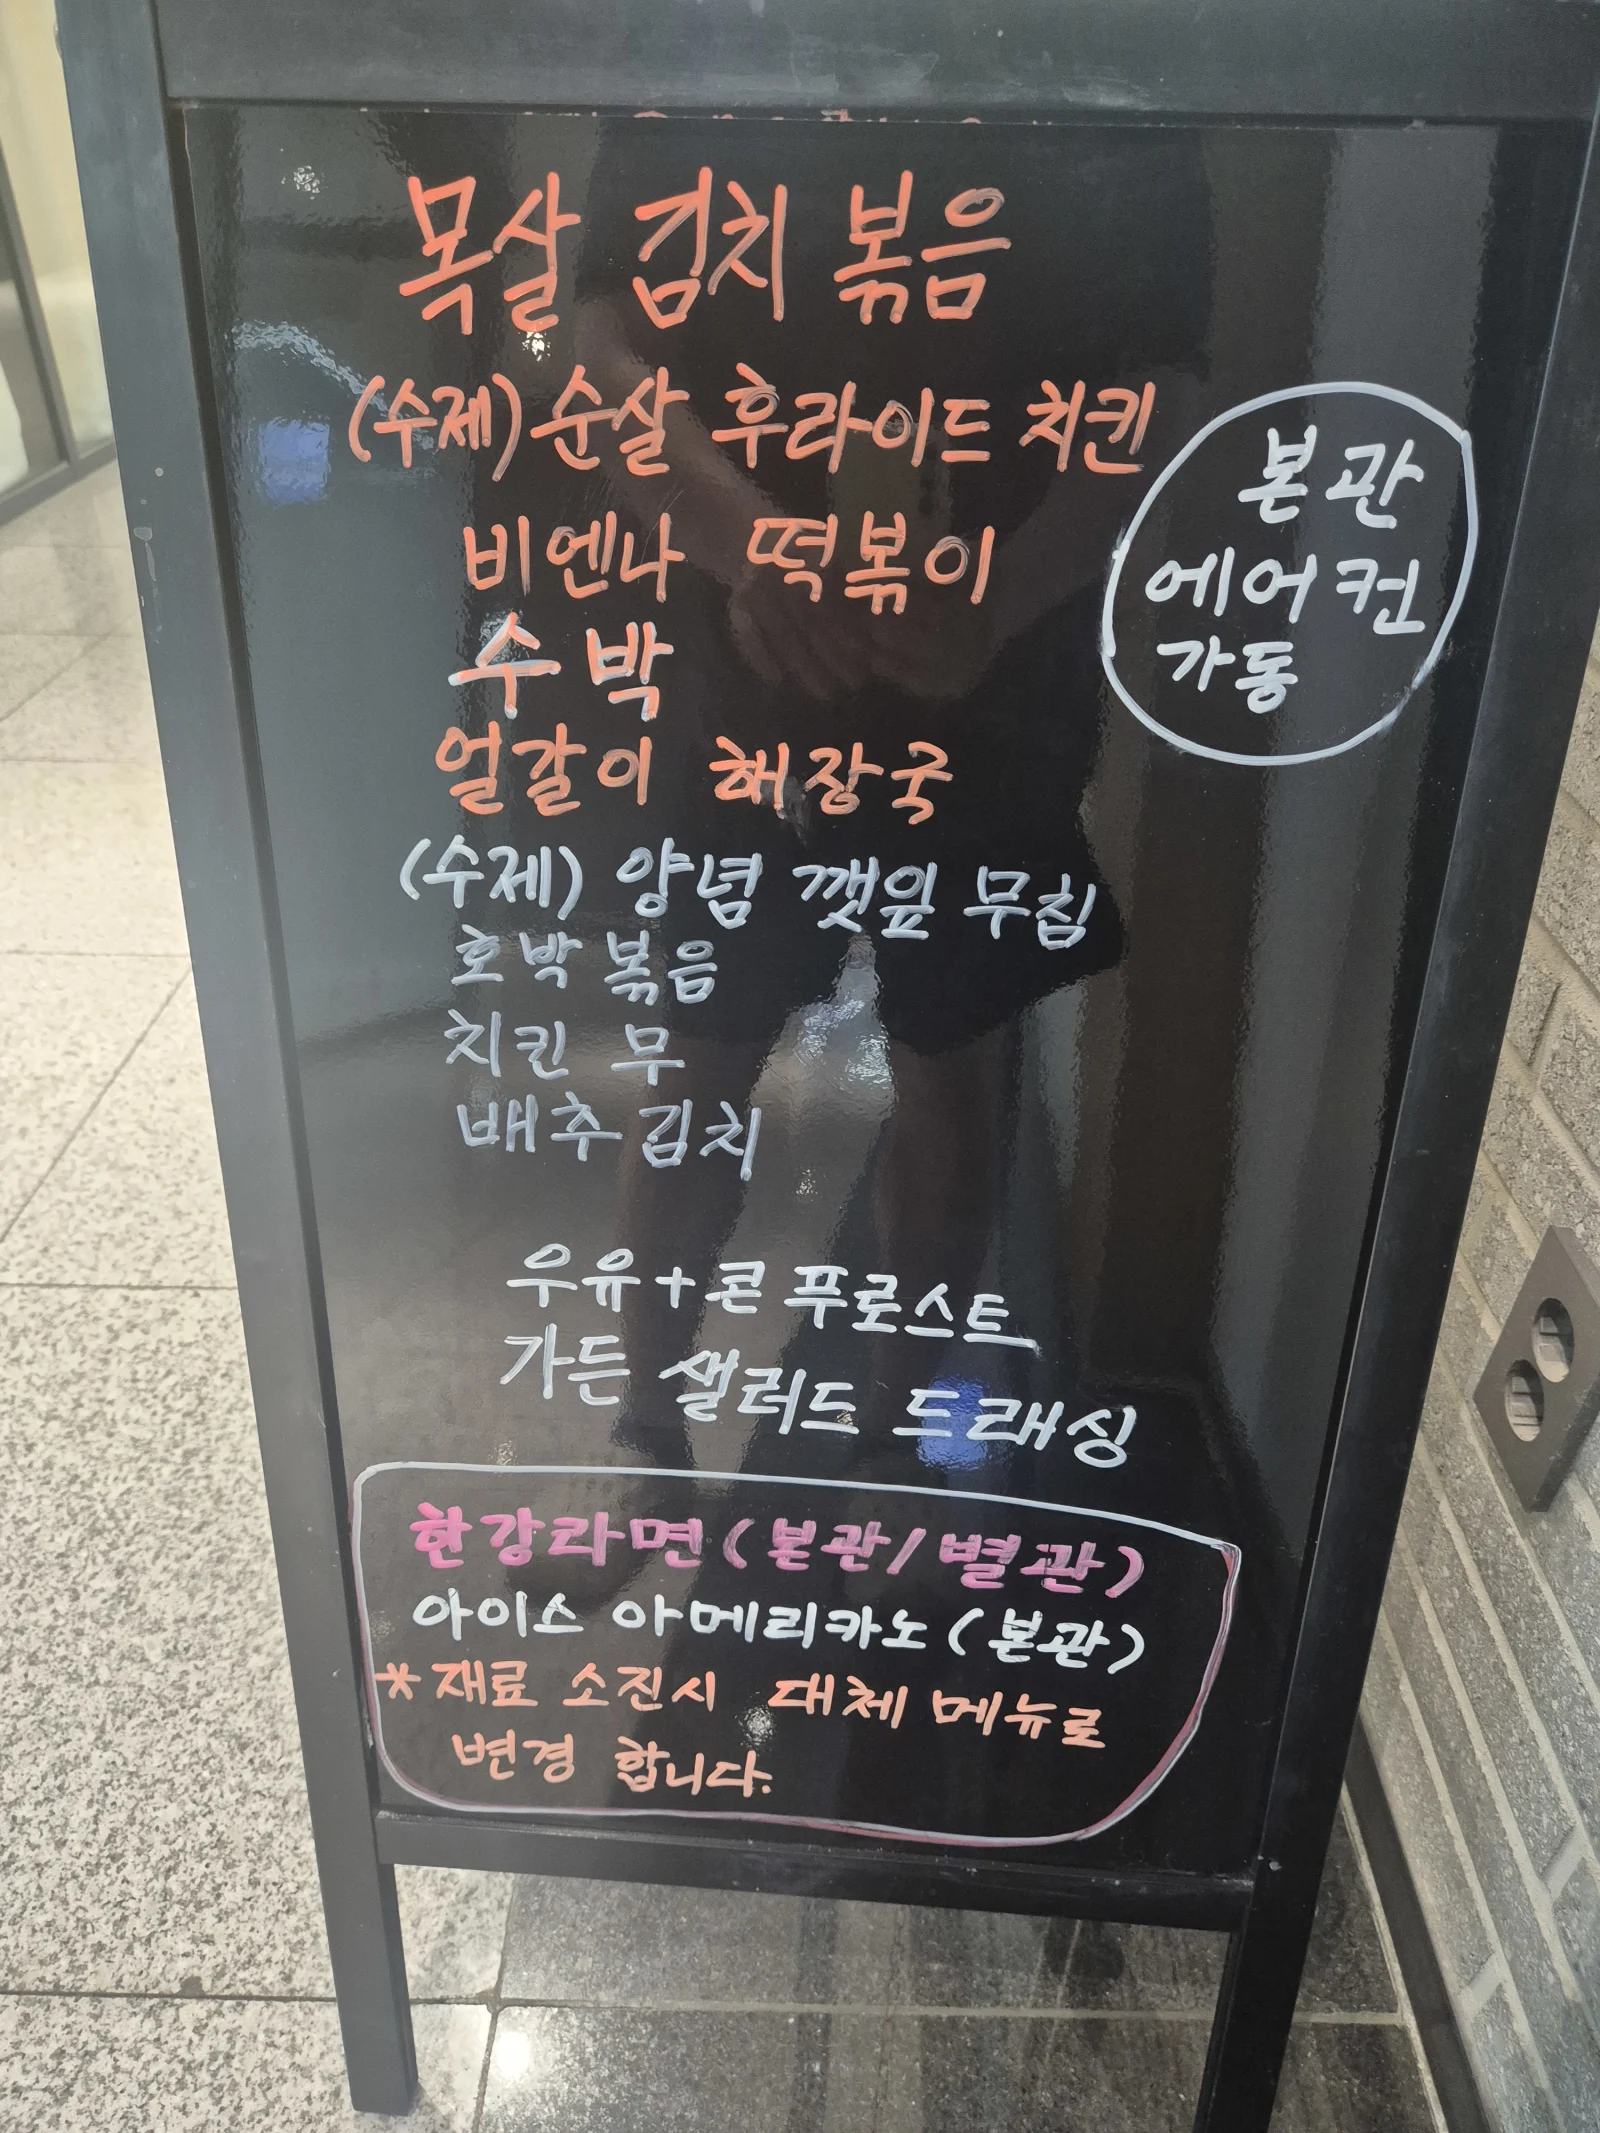 목살 김치 볶음
(수제) 순살 후라이드 치킨
비엔나 떡볶이
수박
얼갈이 해장국
(수제) 양념 깻잎 무침
호박 볶음
치킨 무
배추김치
본관
에어컨
가동
우유+콘 푸로스트
가든 샐러드 드래싱
한강라면 (본관/별관)
아이스 아메리카노 (본관)
*재료 소진시 대체 메뉴로
변경 합니다.